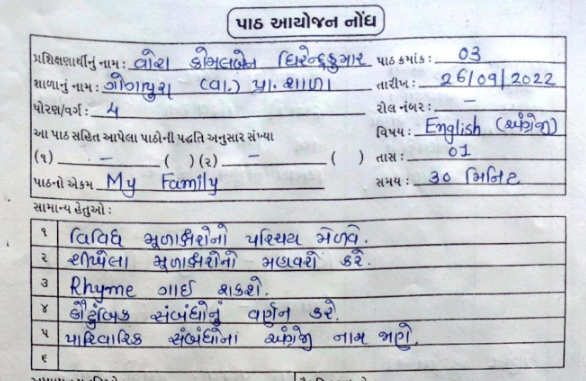 પાઠ આયોજન નોંધ
પ્રશિક્ષણાર્થીનું નામ : વોરા કોમલબેન ધિરેન્દ્રકુમાર પાઠ ક્રમાંક : 03
શાળાનું નામ : ગોગાપુરા (વા.) પ્રા. શાળા તારીખ : 26/09/2022
ધોરણ/વર્ગ : 4 રોલ નંબર : –
આ પાઠ સહિત આપેલા પાઠોની પદ્ધતિ અનુસાર સંખ્યા વિષય : English (અંગ્રેજી)
(૧) – ( ) (૨) – ( ) તાસ : 01
પાઠનો એકમ My Family સમય : 30 મિનિટ
સામાન્ય હેતુઓ :
૧ વિવિધ મૂળાક્ષરોનો પરિચય મેળવે.
૨ શીખેલા મૂળાક્ષરોનો મહાવરો કરે.
૩ Rhyme ગાઈ શકશે.
૪ કૌટુંબિક સંબંધોનું વર્ણન કરે.
૫ પારિવારિક સંબંધોના અંગ્રેજી નામ જાણે.
૬